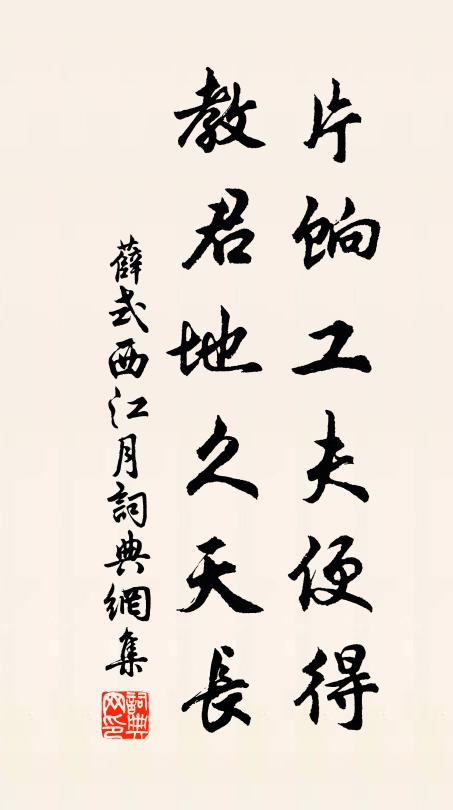 片餉工夫便得
教君地久天長
薛式西江月詞典網集
詞典網印